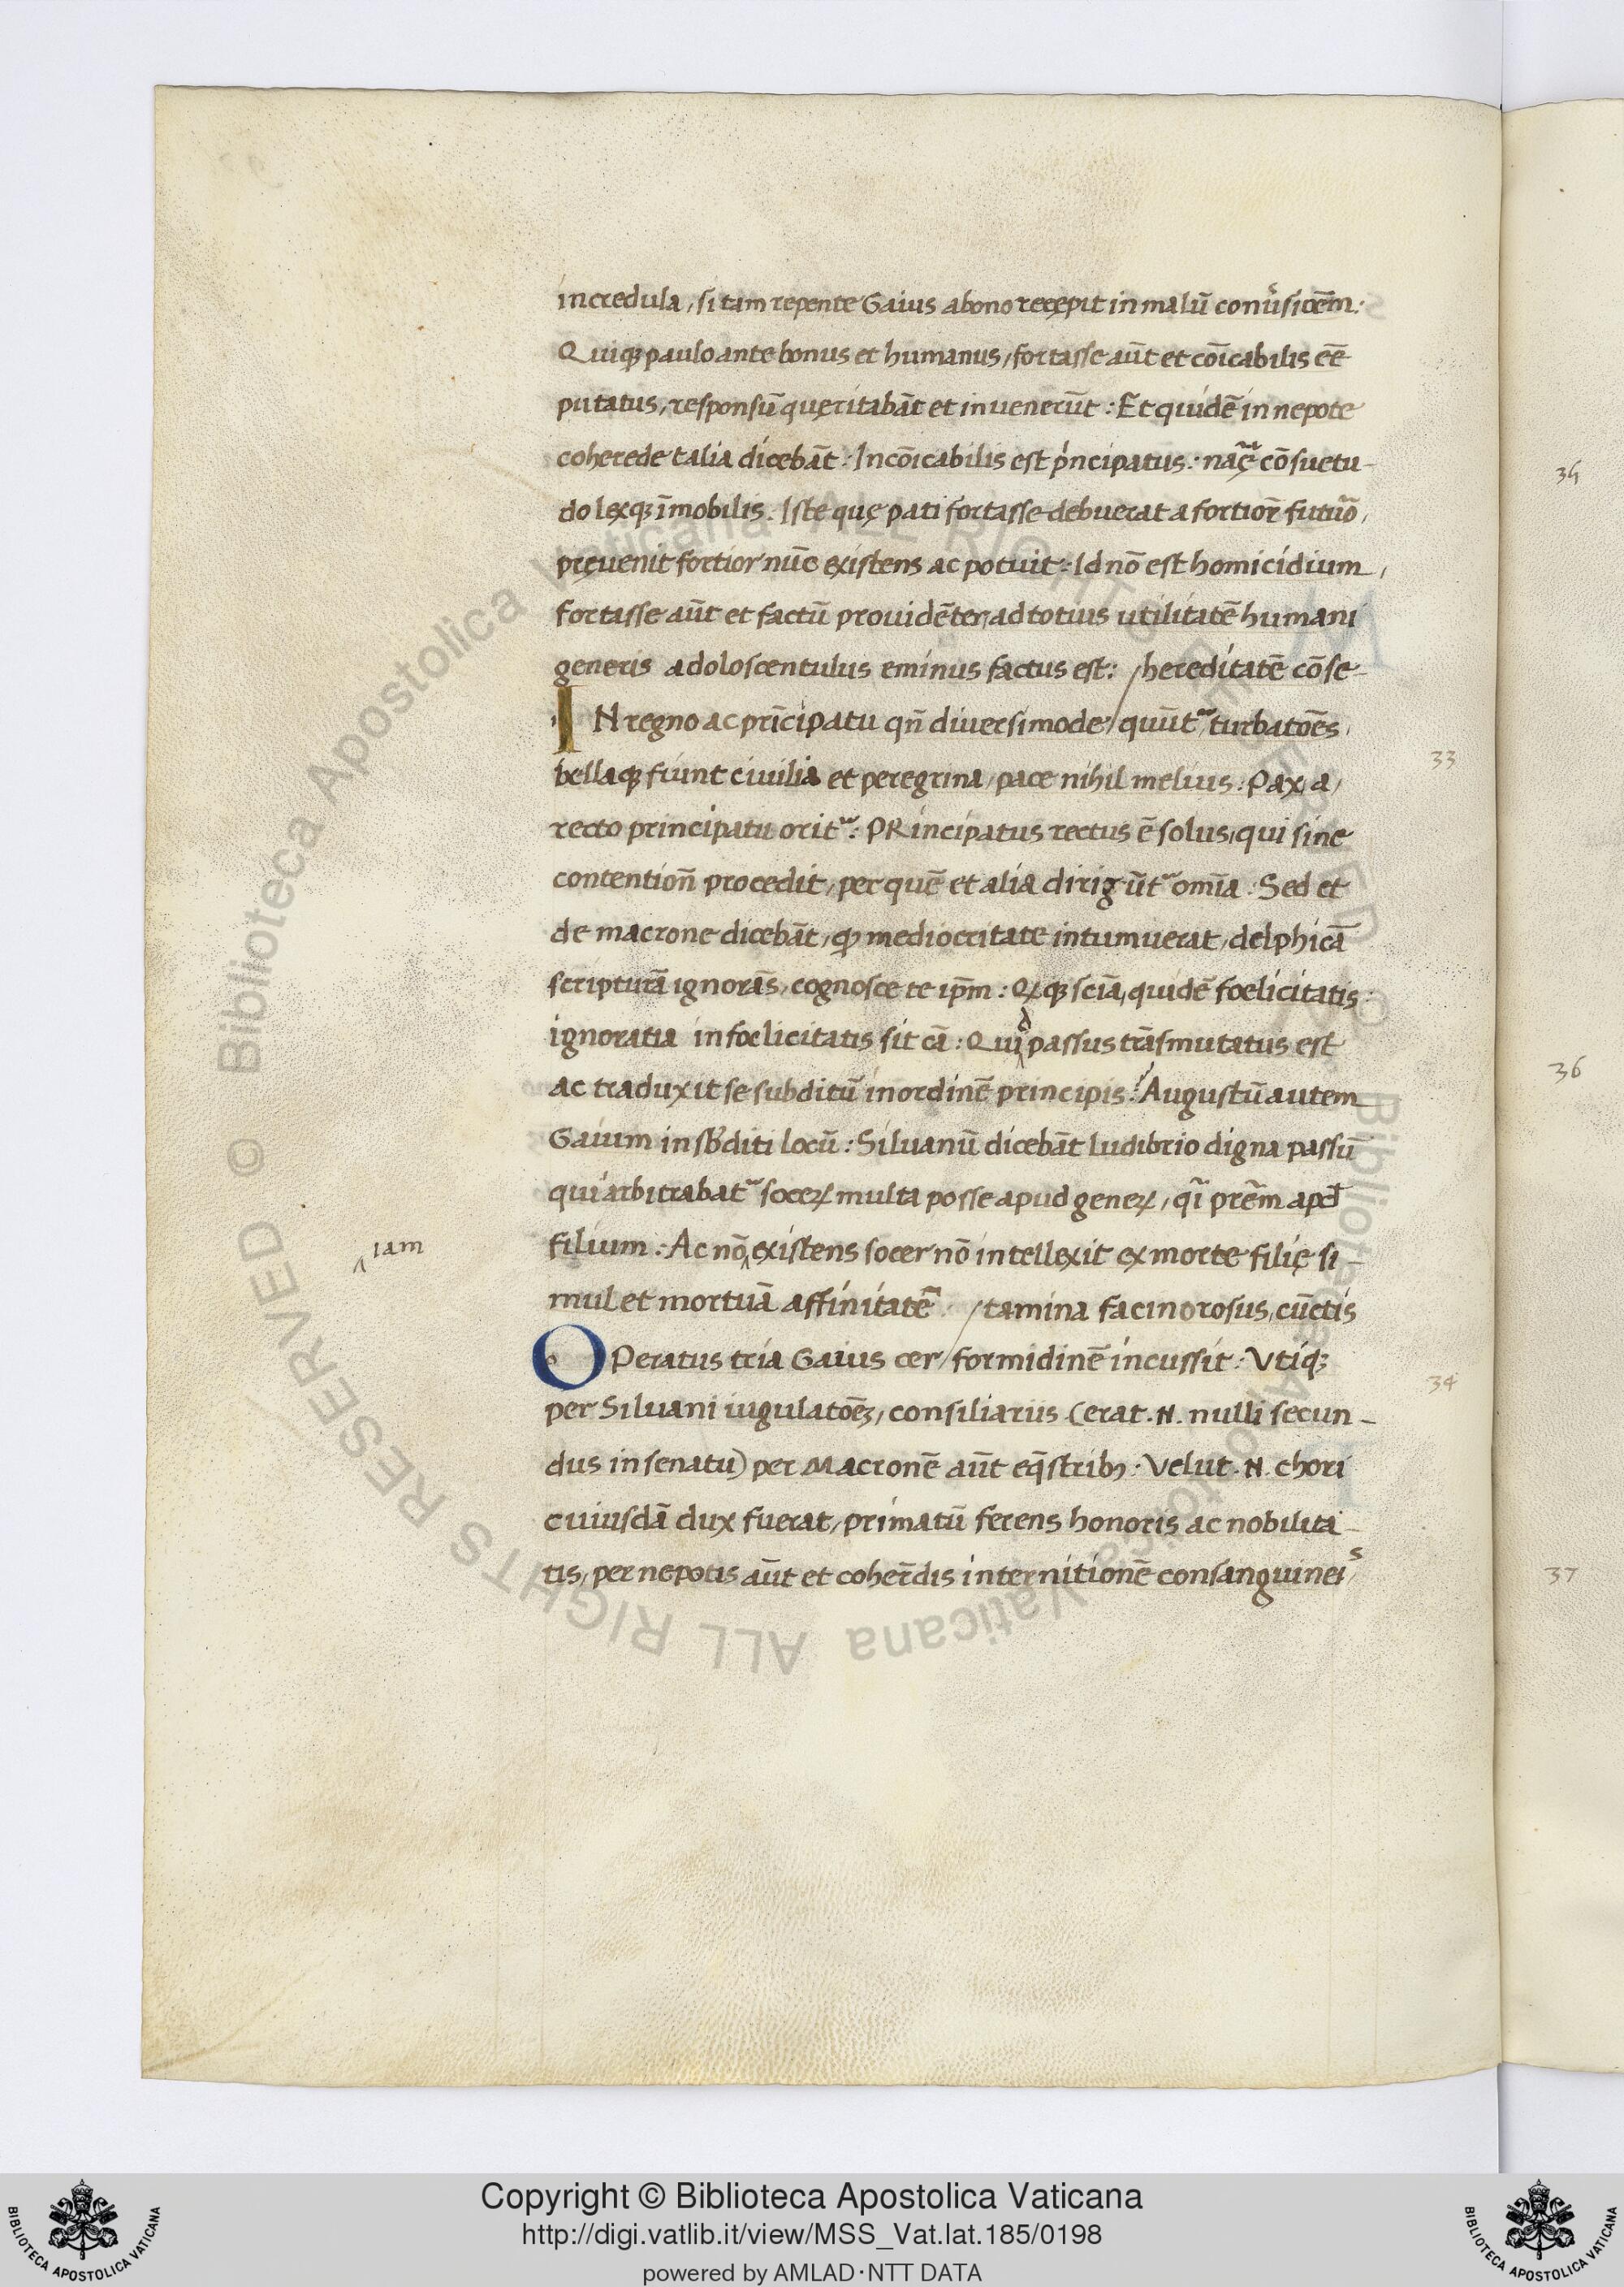 incredula, si tam repente Gaius a bono recępit in malū conūsiōēm:
Quiqꝫ paulo ante bonus et humanus, fortasse aūt et cōīcabilis eē
putatus, responsū quęritabāt et inuenerūt: Et quidē in nepote
coherede talia dicebāt: Incōicabilis est prīncipatus: nāę cōsuetu-
do lexqꝫ īmobilis. Iste quę pati fortasse debuerat a fortior̄ futuro,
pręuenit fortior nūc existens ac potuit: Id nō est homicidium,
fortasse aūt et factū prouidēter, ad totius utilitatē humani
generis adoloscentulus eminus factus est: / hereditatē cōse-
IN regno ac prīcipatu qn̄ diuersimode / quūt᷑ turbatōēs,
bellaqꝫ fiunt ciuilia et peregrina, pace nihil melius: Pax, a,
recto principatu orit᷑: PRincipatus rectus ē solus, qui sine
contention̄ procedit, per quē et alia dirigūt᷑ omīa: Sed et
de macrone dicebāt, qꝫ mediocritate intumuerat, delphicā
scripturā ignorās, cognosce te ip̄m: Qꝫqꝫ sciā, quidē foelicitatis:
ignoratia infoelicitatis sit cā: Quid passus trāsmutatus est
ac traduxit se subditū in ordinē principis: Augustū autem
Gaium in sb̄diti locū: Siluanū dicebāt ludibrio digna passū
qui arbitrabat᷑ soceꝝ multa posse apud geneꝝ, qī prēm apd̄
filium: Ac nō ‸ existens socer nō intellexit ex morte filię si-
‸ iam
mul et mortuā affinitatē / tamina facinorosus, cūctis
OPeratus tria Gaius cer / formidinē incussit: Vtiqꝫ
per Siluani iugulatōēꝫ, consiliariis (erat .N. nulli secun-
dus in senatu) per Macronē aūt eq̄stribꝰ: Velut .N. chori
cuiusdā dux fuerat, primatū ferens honoris ac nobilita-
tis, per nepotis aūt et coher̄dis internitionē consanguineis,
33
34
35
36
37
Copyright © Biblioteca Apostolica Vaticana
http://digi.vatlib.it/view/MSS_Vat.lat.185/0198
powered by AMLAD·NTT DATA
BIBLIOTECA APOSTOLICA VATICANA
BIBLIOTECA APOSTOLICA VATICANA
© Biblioteca Apostolica Vaticana ALL RIGHTS RESERVED
© Biblioteca Apostolica Vaticana ALL RIGHTS RESERVED